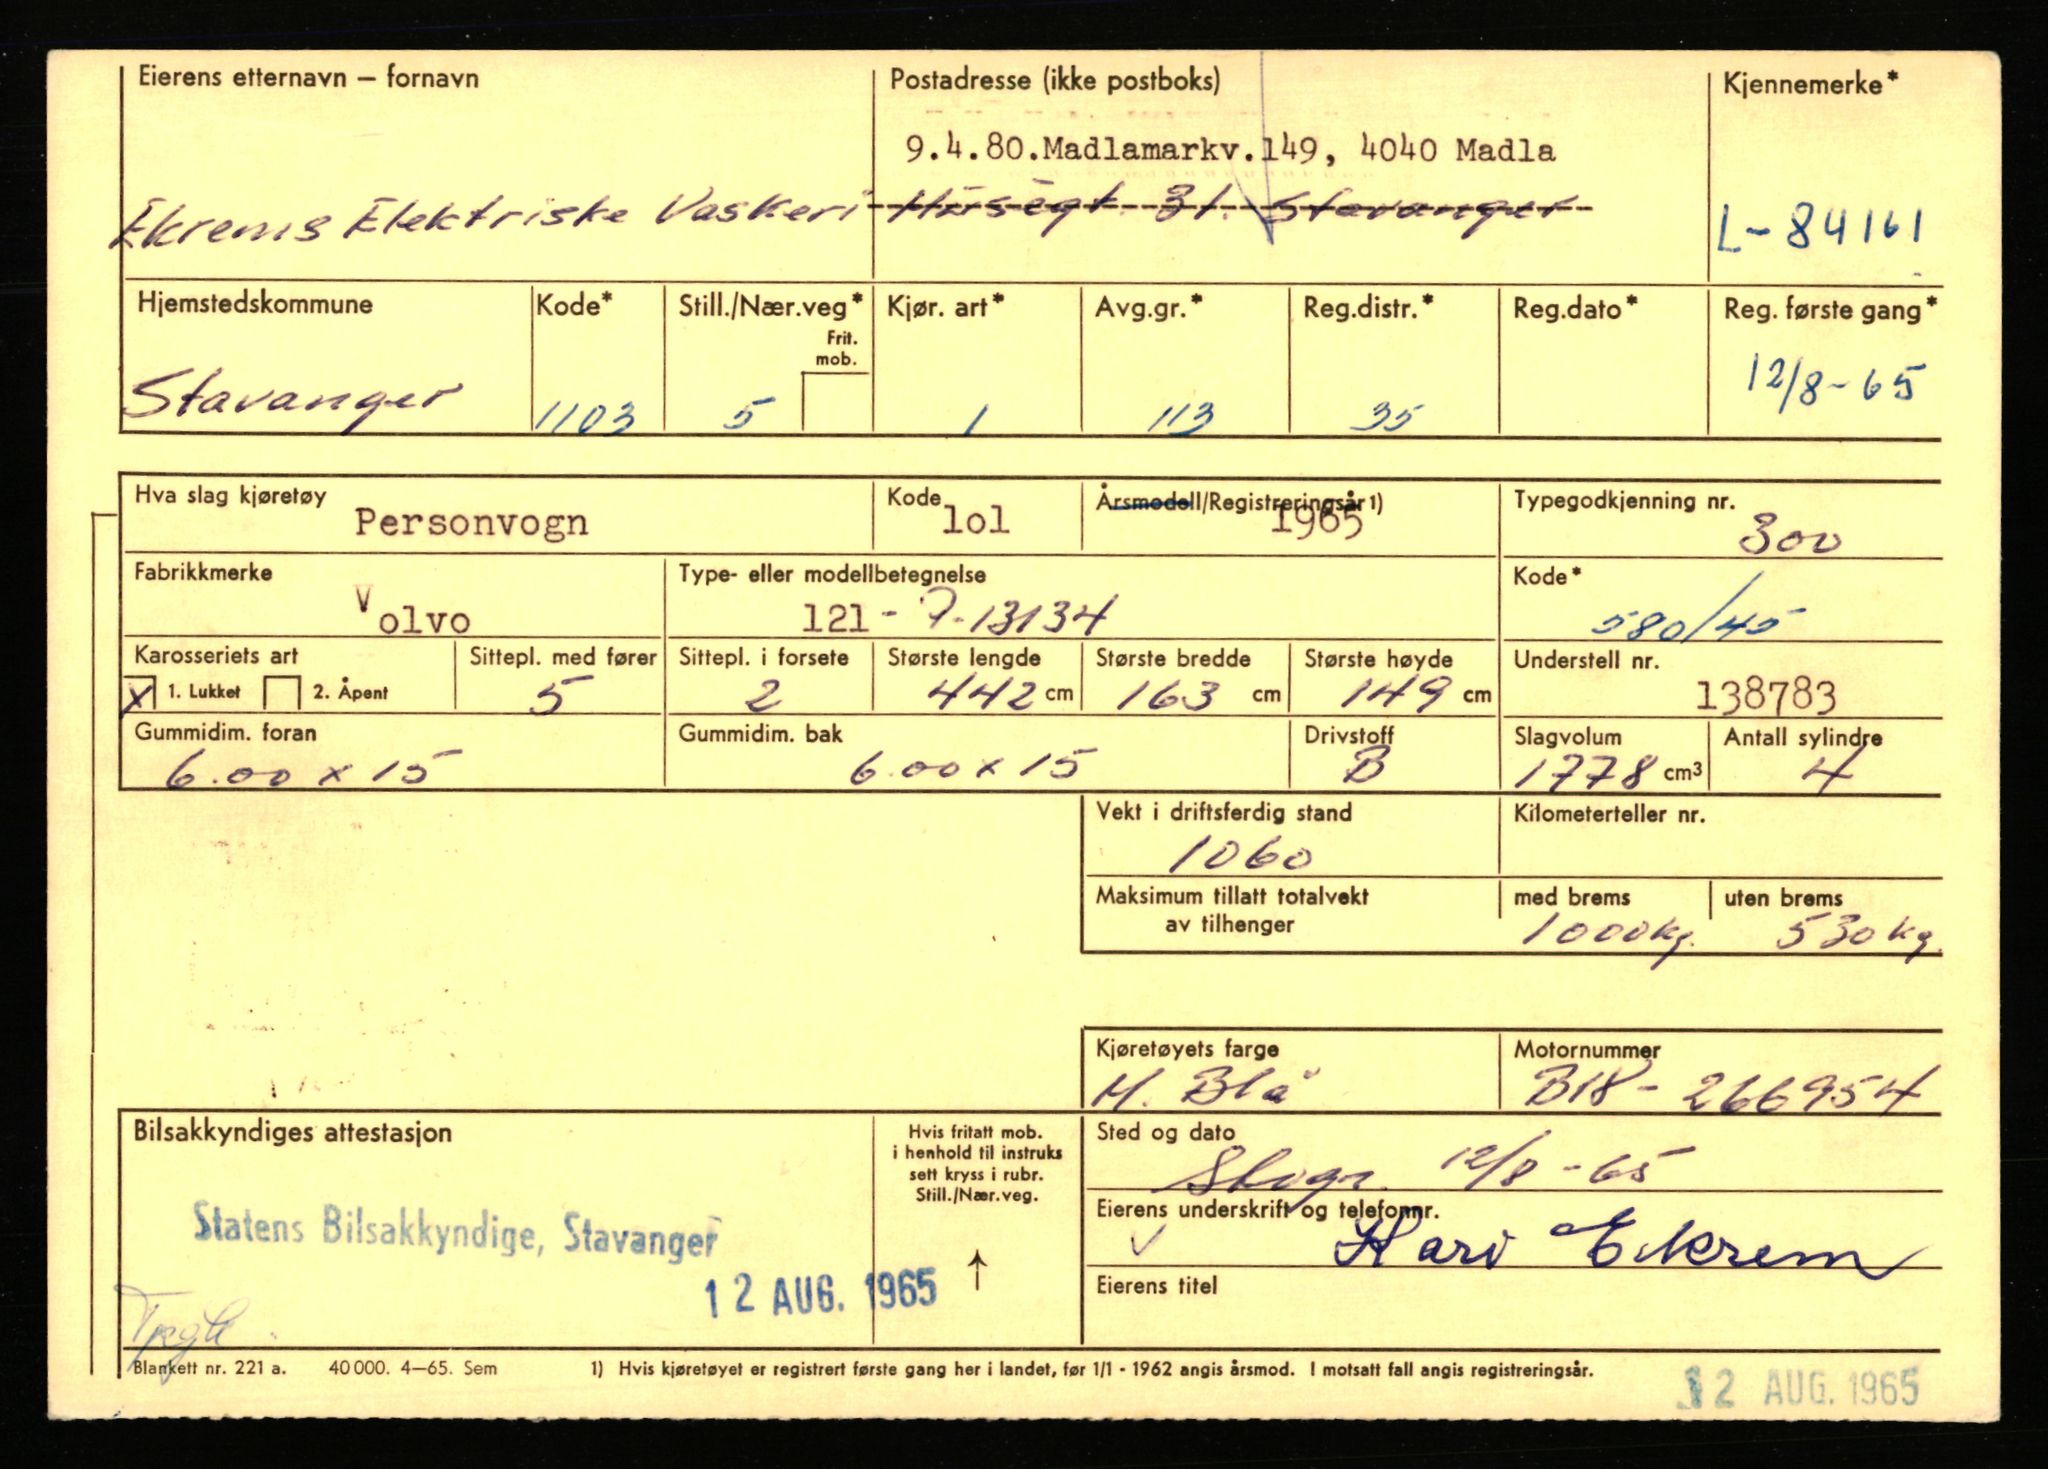 Eierens etternavn – fornavn
Postadresse (ikke postboks)
Kjennemerke*
9.4.80.Madlamarkv.149, 4040 Madla
Ekrems Elektriske Vaskeri 31. Stavanger
L-84161
Hjemstedskommune
Kode*
Still./Nær.veg*
Frit. mob.
Kjør. art*
Avg.gr.*
Reg.distr.*
Reg.dato*
Reg. første gang*
Stavanger
1103
5
1
113
35
12/8-65
Hva slag kjøretøy
Kode
Årsmodell/Registreringsår 1)
Typegodkjenning nr.
Personvogn
lol
1965
300
Fabrikkmerke
Type- eller modellbetegnelse
Kode*
Volvo
121 - P-13134
580/45
Karosseriets art
Sittepl. med fører
Sittepl. i forsete
Største lengde
Største bredde
Største høyde
Understell nr.
x 1. Lukket
2. Åpent
5
2
442 cm
163 cm
149 cm
138783
Gummidim. foran
Gummidim. bak
Drivstoff
Slagvolum
Antall sylindre
6.00 x 15
6.00 x 15
B
1778 cm3
4
Vekt i driftsferdig stand
Kilometerteller nr.
1060
Maksimum tillatt totalvekt
av tilhenger
med brems
uten brems
1000kg.
530kg.
Kjøretøyets farge
Motornummer
M. Blå
B18 - 266954
Bilsakkyndiges attestasjon
Hvis fritatt mob.
i henhold til instruks
sett kryss i rubr.
Still./Nær.veg.
Sted og dato
12/8-65
Statens Bilsakkyndige, Stavanger
12 AUG. 1965
Eierens underskrift og telefonnr.
Kari Ekrem
Eierens titel
Blankett nr. 221 a. 40 000. 4–65. Sem
1) Hvis kjøretøyet er registrert første gang her i landet, før 1/1 - 1962 angis årsmod. I motsatt fall angis registreringsår.
12 AUG. 1965